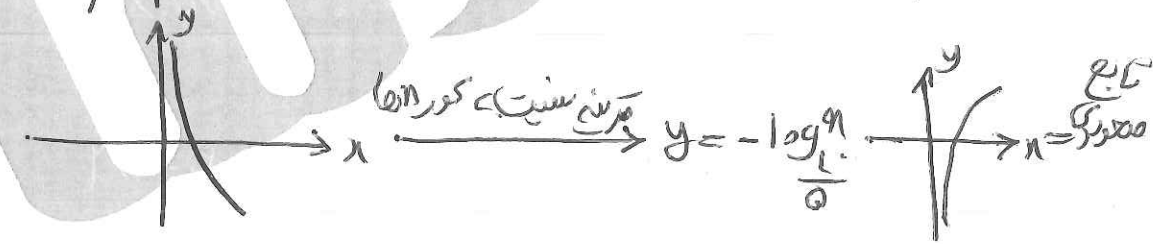 y
x قرینه نسبت به محور xها y = -log x ۱/۵ y x = تابع صعودی